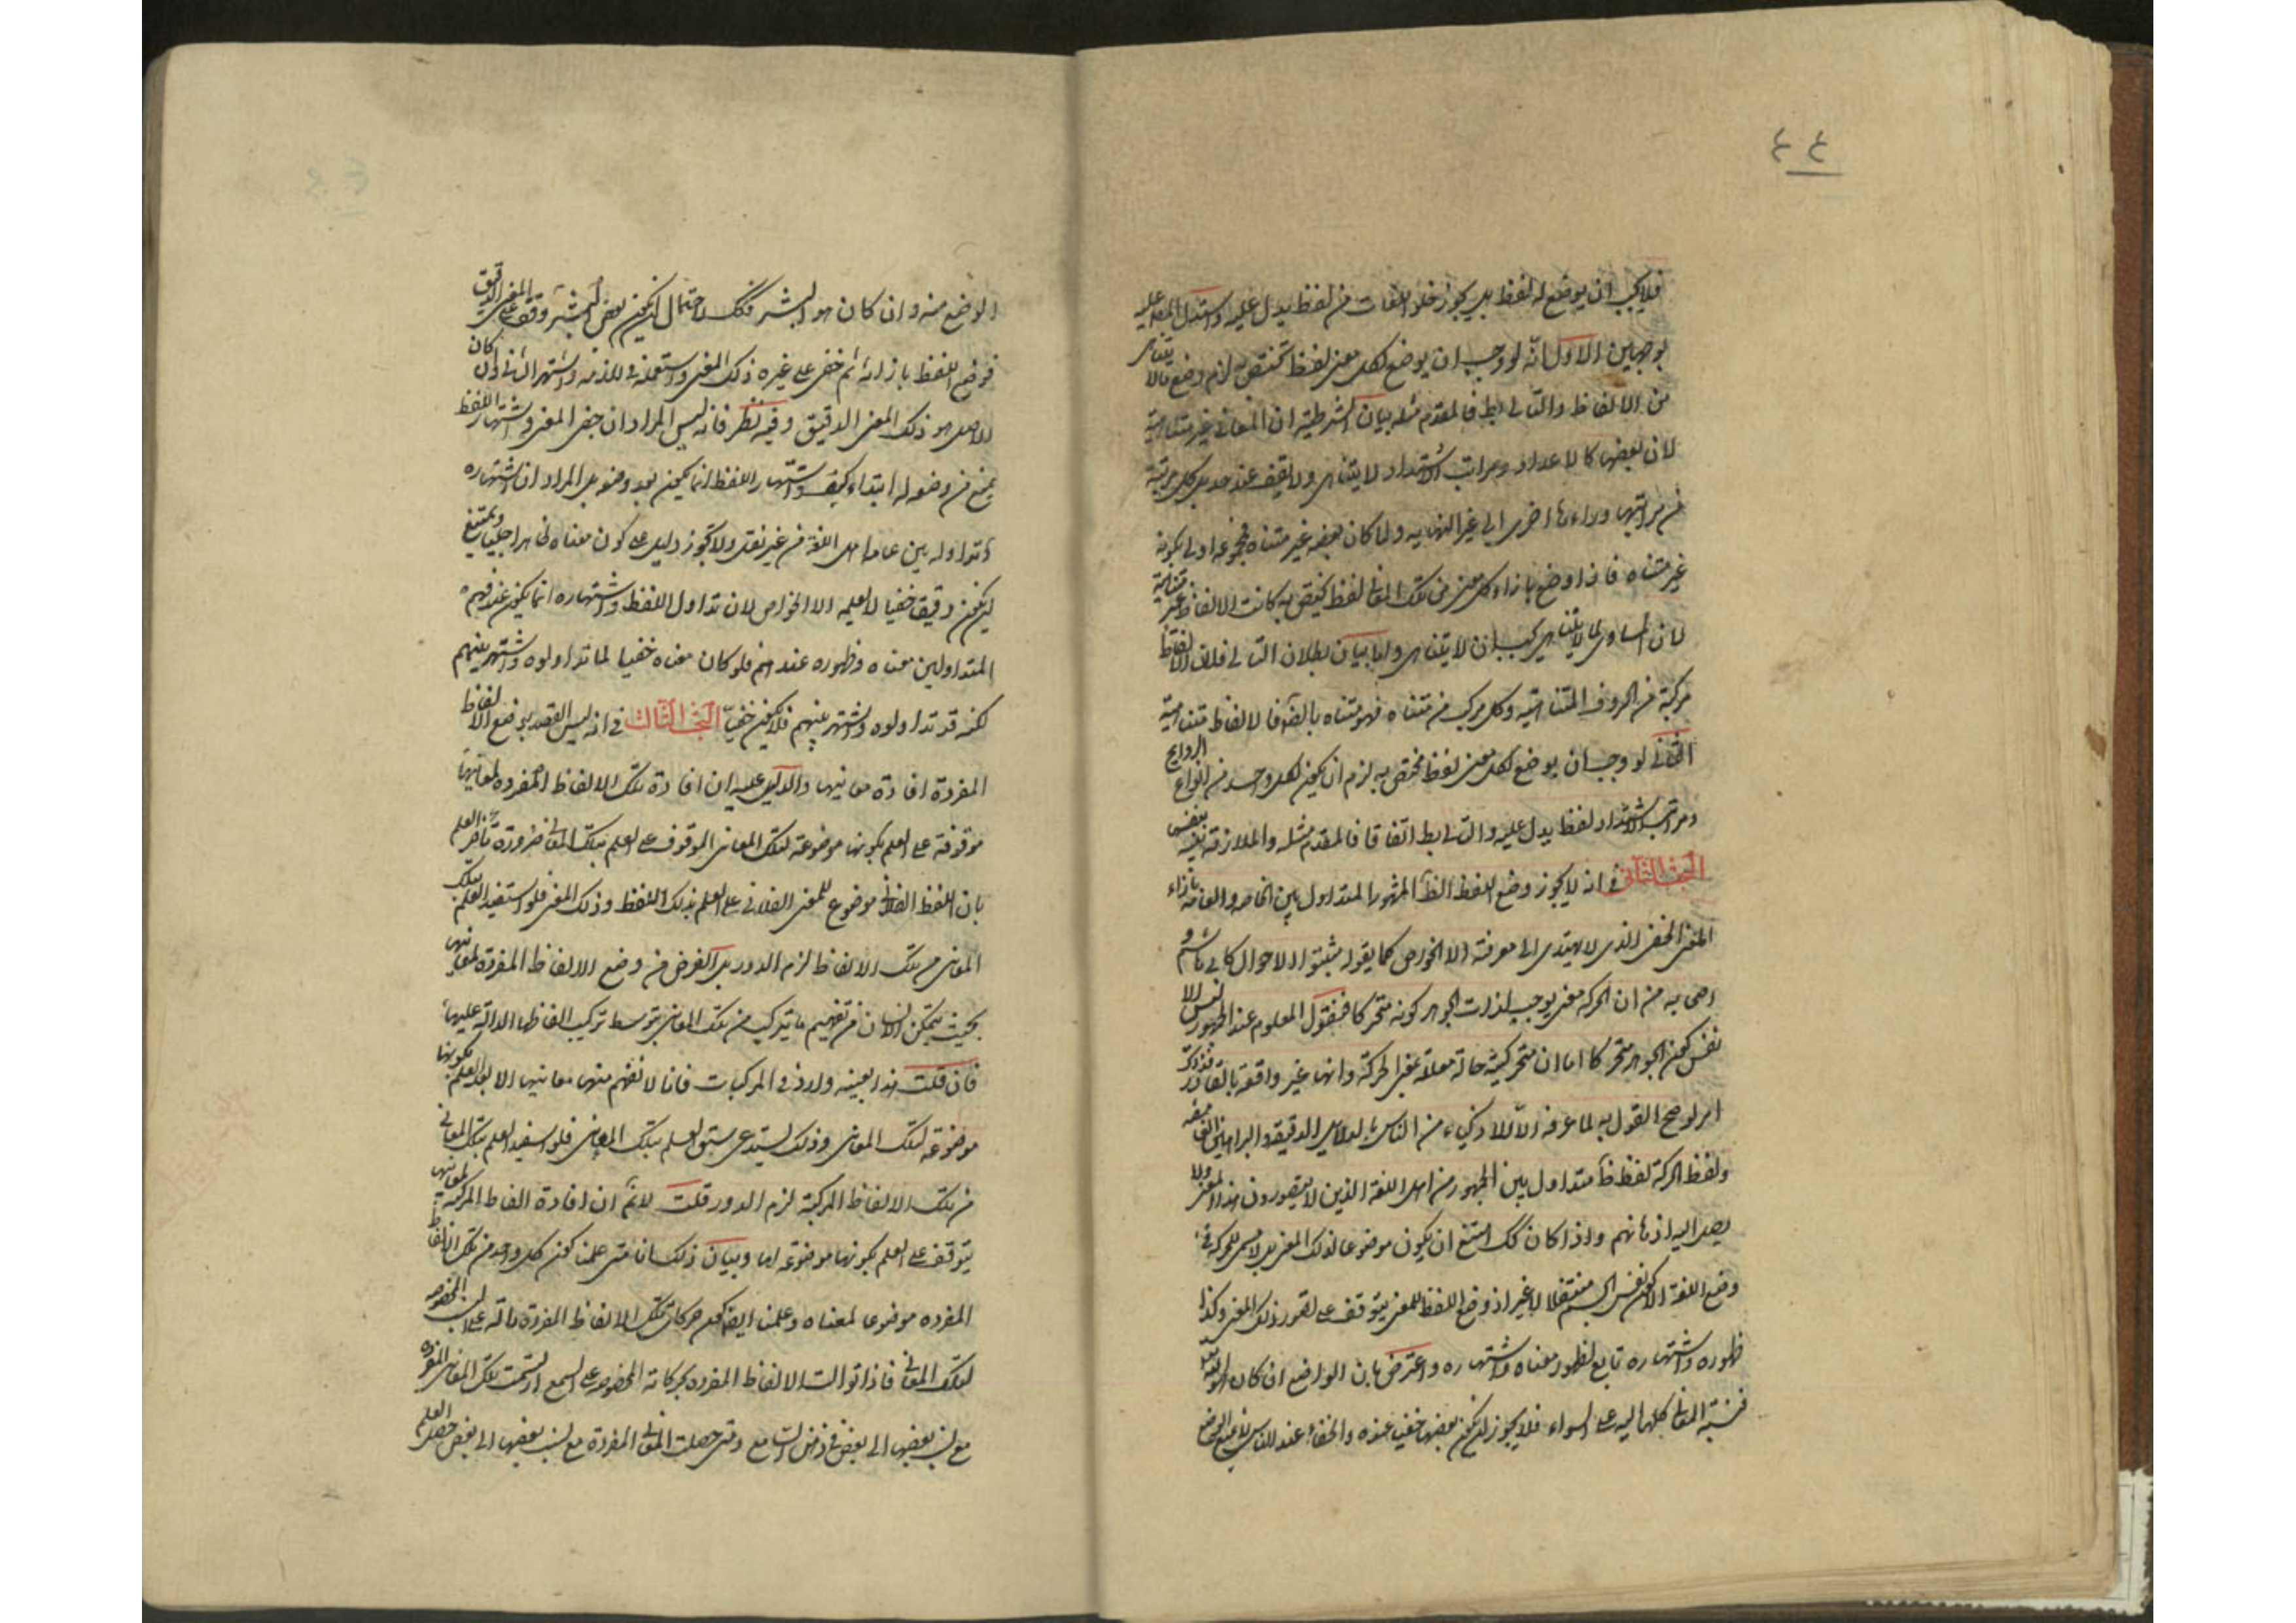 ٤٤
فلا يجب ان يوضع له لفظ بل يجوز خلو اللغات من لفظ يدل عليه واستدل المصـ عليه
بوجهين الاول انه لو وجب ان يوضع لكل معنى لفظ تختص به لزم وضع مالا يتناهى
من الالفاظ والتالى بط فالمقدم مثله بيان الشرطية ان المعانى غير متناهية
لان بعضها كالاعداد ومراتب الاشتداد لا يتناهى ولا يقف عند حد بل كل مرتبة
من مراتبها وراءها اخرى الى غير النهايه ولما كان بعضه غير متناه فمجموعه اولى بكونه
غير متناه فاذا وضع بازاء كل معنى من تلك المعانى لفظ يختص به كانت الالفاظ غير متناهية
لان المساوى لما لا يتناهى يجب ان لا يتناهى واما بيان بطلان التالى فلان الالفاظ
مركبة من الحروف المتناهيه وكل مركب من متناه فهو متناه بالضـ فالالفاظ متناهية
الثانى لو وجب ان يوضع لكل معنى لفظ مختص به لزم ان يكون لكل واحد من انواع الروايح
ومراتب الاشتداد لفظ يدل عليه والتالى بط اتفاقا فالمقدم مثله والملازمة
البحث الثانى فى انه لا يجوز وضع اللفظ الظـ المشهور المتداول بين الخاصه والعامه بازاء
المعنى الخفى الذى لا يهتدى الى معرفته الا الخواص كما يقوله مثبتوا الاحوال كابى هاشم و
اصحابه من ان الحركه معنى يوجب لذات الجوهر كونه متحركا فنقول المعلوم عند الجمهور ليس الا
نفس كون الجوهر متحركا اما ان متحركيته حالة معللة بمعنى الحركة وانها غير واقعة بالقادر فذلك
امر لو صح القول به لما عرفه الا الاذكياء من الناس بالدلايل الدقيقه والبراهين الغامضه
ولفظ الحركة لفظ ظـ متداول بين الجمهور من اهل اللغة الذين لا يتصورون هذا المعنى ولا
يصل اليه اذهانهم واذا كان كك امتنع ان يكون موضوعا لذلك المعنى بل لا مسمى للحركه فى
وضع اللغة الا كون نفس الجسم منتقلا لا غير اذ وضع اللفظ للمعنى يتوقف على تصور ذلك المعنى وكذا
ظهوره واشتهاره تابع لظهور معناه واشتهاره واعترض بان الواضع ان كان هو الله تعـ
فنسبة المعانى كلها اليه على السواء فلا يجوز ان يكون بعضها خفيا عنده والخفاء عند الناس لا يمنع الوضع
الوضع منه وان كان هو البشر فكك لاحتمال ان يكون بعض البشر وقف على المعنى الدقيق
فوضع اللفظ بازائه ثم خفى على غيره ذلك المعنى واستعمله فى لازمه واشتهر الثانى وان كان
الاصل هو ذلك المعنى الدقيق وفيه نظر فانه ليس المراد ان خفى المعنى واشتهار اللفظ
يمنع من وضعه له ابتداء كيف واشتهار اللفظ انما يكون بعد وضعه بل المراد ان اشتهاره
وتداوله بين عامه اهل اللغة من غير نقل ولا تجوز دليل على كون معناه ظاهرا جليا ويمتنع
ان يكون دقيقا خفيا لا يعلمه الا الخواص لان تداول اللفظ واشتهاره انما يكون عند فهم
المتداولين معناه وظهوره عندهم فلو كان معناه خفيا لما تداولوه واشتهر بينهم
لكنه قد تداولوه واشتهر بينهم فلا يكون خفيا البحث الثالث فى انه ليس القصد بوضع الالفاظ
المفردة افادة معانيها والدليل عليه ان افادة تلك الالفاظ المفرده لمعانيها
موقوفة على العلم بكونها موضوعة لتلك المعانى الموقوف على العلم بتلك المعانى ضرورة تأخر العلم
بان اللفظ الفلانى موضوع للمعنى الفلانى على العلم بذلك اللفظ وذلك المعنى فلو استفيد العلم بتلك
المعانى من تلك الالفاظ لزم الدور بل الغرض من وضع الالفاظ المفردة لمعانيها
بحيث يتمكن الانسان من تفهيم ما يتركب من تلك المعانى بتوسط تركيب الفاظها الدالة عليها
فان قلت هذا بعينه وارد فى المركبات فانا لا نفهم منها معانيها الا بعد العلم بكونها
موضوعة لتلك المعانى وذلك يستدعى سبق العلم بتلك المعانى فلو استفيد العلم بتلك المعانى
من تلك الالفاظ المركبة لزم الدور قلت لا نم ان افادة الفاظ المركبة لمعانيها
يتوقف على العلم بكونها موضوعة لها وبيان ذلك انا متى علمنا كون كل واحد من تلك الالفاظ
المفرده موضوعا لمعناه وعلمنا ايضا كون حركات تلك الالفاظ المفردة دالة على النسب المخصوصه
لتلك المعانى فاذا توالت الالفاظ المفرده بحركاته المخصوصه على السمع ارتسمت تلك المعانى المفرده
مع نسب بعضها الى بعض فى ذهن السامع ومتى حصلت المعانى المفردة مع نسب بعضها الى بعض حصل العلم